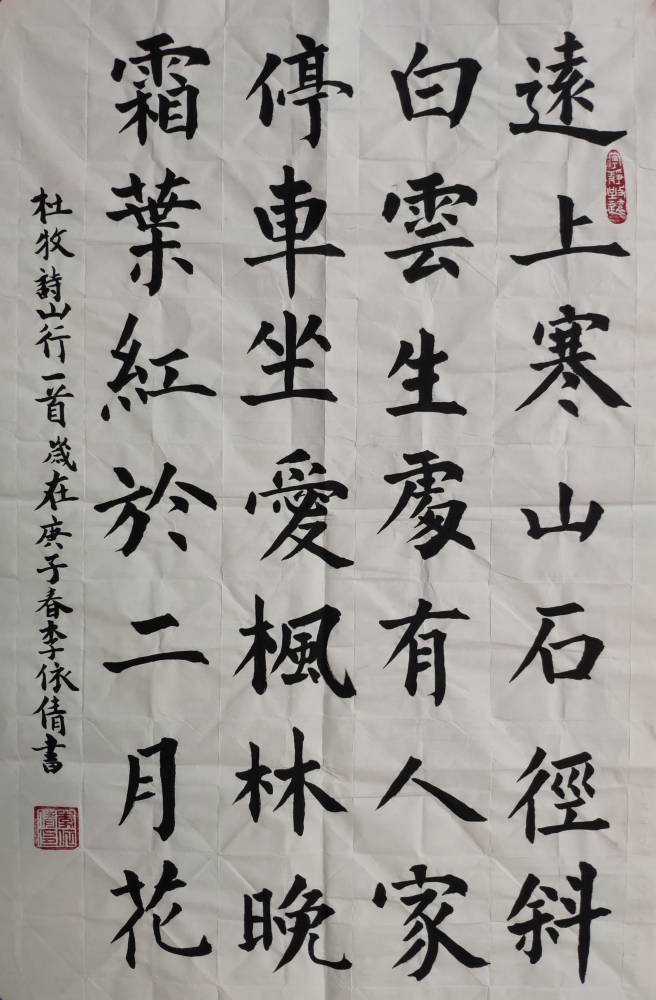 遠上寒山石徑斜
白雲生處有人家
停車坐愛楓林晚
霜葉紅於二月花
杜牧詩山行一首歲在庚子春李依倩書
寧靜致遠
李依倩印